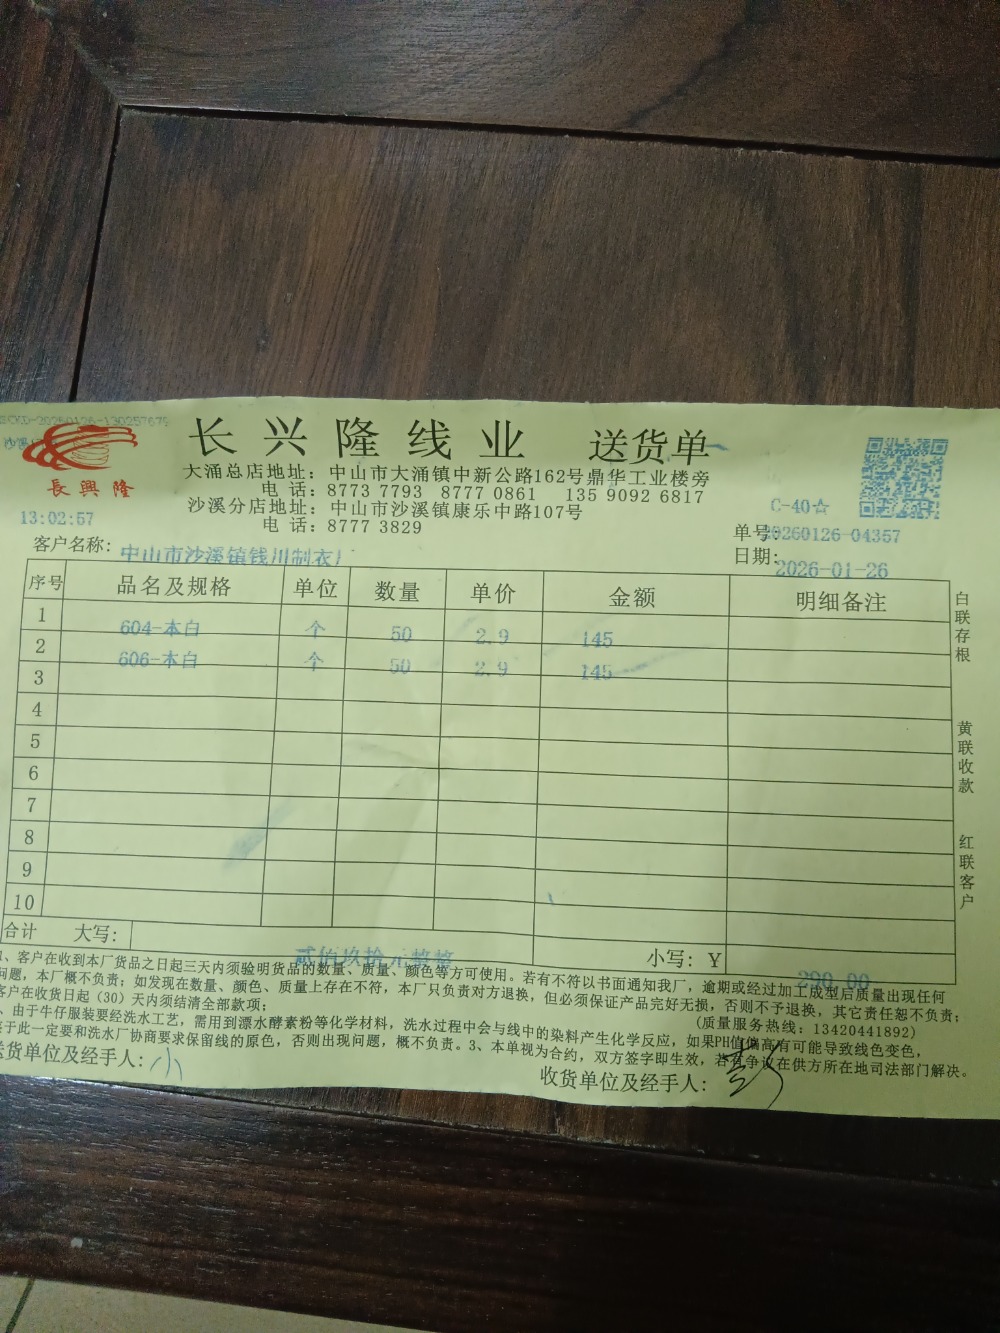 長興隆
长兴隆线业 送货单
大涌总店地址：中山市大涌镇中新公路162号鼎华工业楼旁
电 话：8773 7793 8777 0861 135 9092 6817
沙溪分店地址：中山市沙溪镇康乐中路107号
电 话：8777 3829
C-40☆
13:02:57
单号20260126-04357
客户名称：中山市沙溪镇钱川制衣厂
日期：2026-01-26
序号 品名及规格 单位 数量 单价 金额 明细备注
1 604-本白 个 50 2.9 145
2 606-本白 个 50 2.9 145
3
4
5
6
7
8
9
10
合计 大写：贰佰玖拾元整整 小写：￥290.00
白联存根
黄联收款
红联客户
1、客户在收到本厂货品之日起三天内须验明货品的数量、质量、颜色等方可使用。若有不符以书面通知我厂，逾期或经过加工成型后质量出现任何
问题，本厂概不负责；如发现在数量、颜色、质量上存在不符，本厂只负责对方退换，但必须保证产品完好无损，否则不予退换，其它责任恕不负责；
客户在收货日起（30）天内须结清全部款项； （质量服务热线：13420441892）
、由于牛仔服装要经洗水工艺，需用到漂水酵素粉等化学材料，洗水过程中会与线中的染料产生化学反应，如果PH值偏高有可能导致线色变色，
基于此一定要和洗水厂协商要求保留线的原色，否则出现问题，概不负责。3、本单视为合约，双方签字即生效，若有争议在供方所在地司法部门解决。
送货单位及经手人：小
收货单位及经手人：